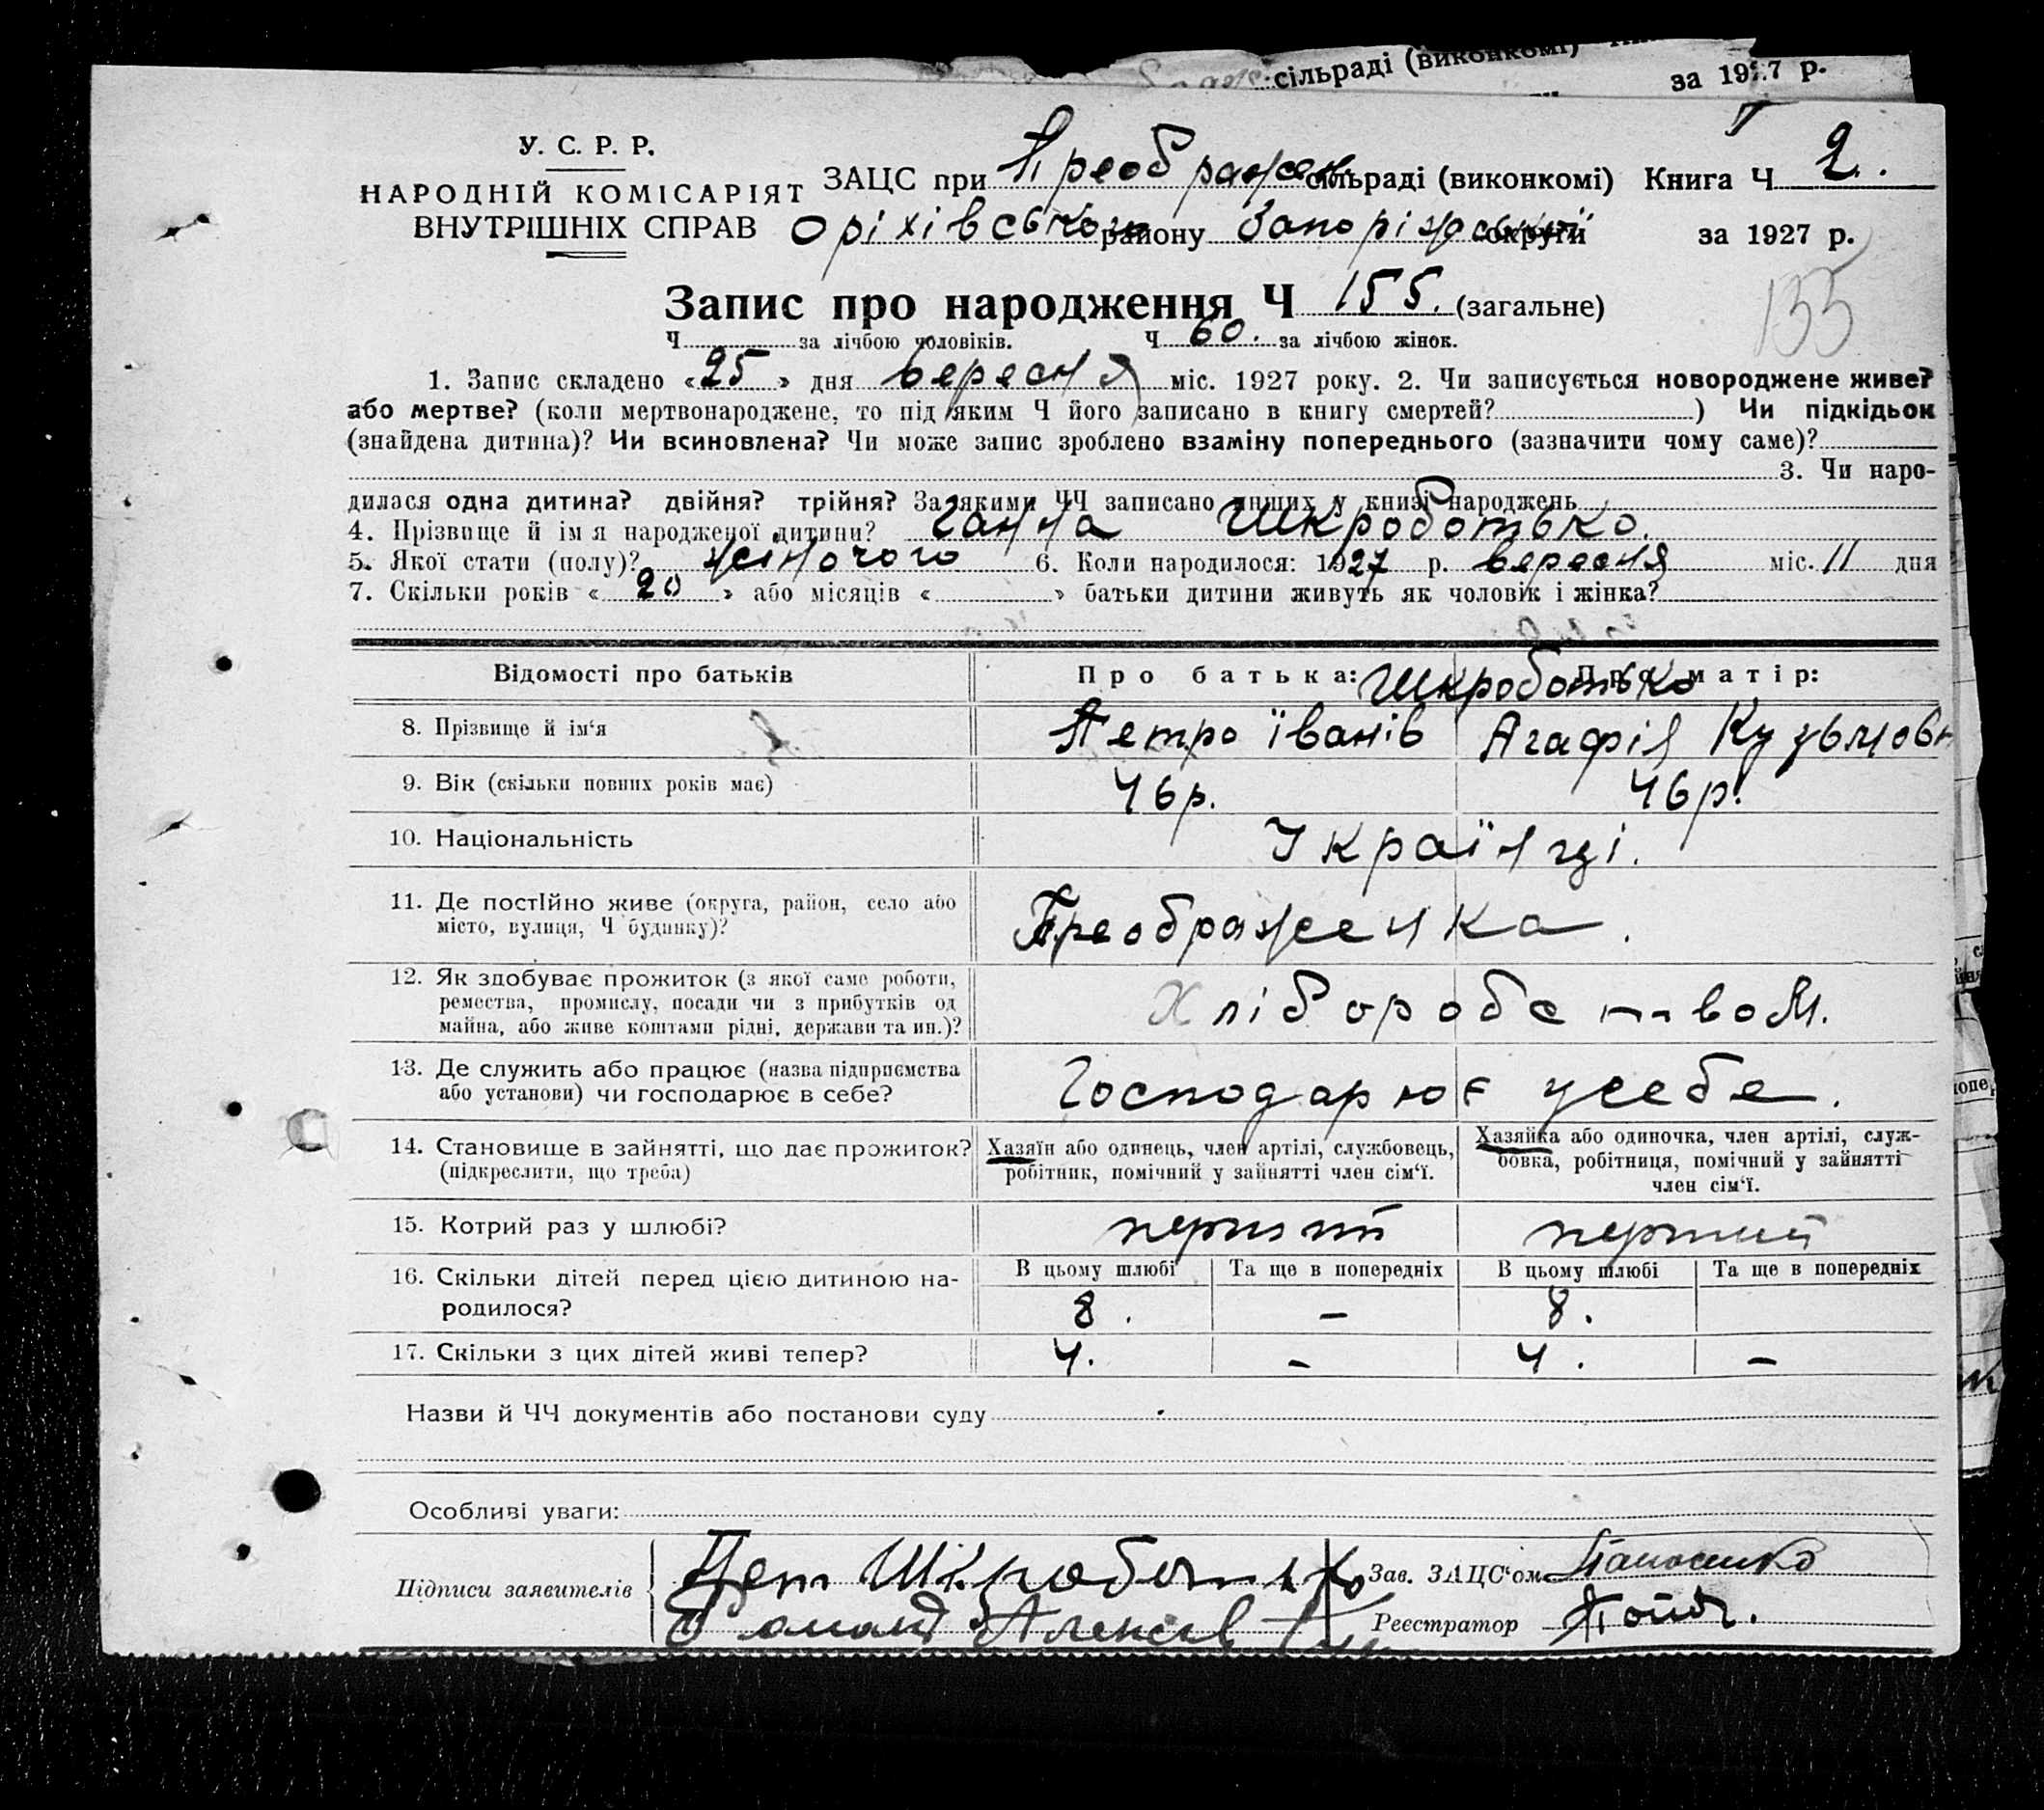 сільраді (виконкомі)
за 1927 р.
У. С. Р. Р.
НАРОДНІЙ КОМІСАРІЯТ
ВНУТРІШНІХ СПРАВ
ЗАЦС при Преображен. сільраді (виконкомі) Книга Ч 2.
Оріхівського району Запоріжської округи за 1927 р.
155
Запис про народження Ч 155. (загальне)
Ч за лічбою чоловіків. Ч 60. за лічбою жінок.
1. Запис складено «25» дня вересня міс. 1927 року. 2. Чи записується новороджене живе?
або мертве? (коли мертвонароджене, то під яким Ч його записано в книгу смертей? ) Чи підкідьок
(знайдена дитина)? Чи всиновлена? Чи може запис зроблено взаміну попереднього (зазначити чому саме)?
3. Чи наро-
дилася одна дитина? двійня? трійня? За якими ЧЧ записано инших у книзі народжень
4. Прізвище й ім я народженої дитини? Ганна Шкроботько.
5. Якої стати (полу)? жіночого 6. Коли народилося: 1927 р. вересня міс. 11 дня
7. Скільки років «20» або місяців « » батьки дитини живуть як чоловік і жінка?
Відомості про батьків Про батька: Про матір:
Шкроботько
8. Прізвище й ім‘я Петро Іванів Агафія Кузьмовн
9. Вік (скільки повних років має) 46р. 46р.
10. Національність Українці.
11. Де постійно живе (округа, район, село або
місто, вулиця, Ч будинку)? Преображенка.
12. Як здобуває прожиток (з якої саме роботи,
ремества, промислу, посади чи з прибутків од
майна, або живе коштами рідні, держави та ин.)? Хліборобством.
13. Де служить або працює (назва підприємства
або установи) чи господарює в себе? Господарює усебе.
14. Становище в зайнятті, що дає прожиток?
(підкреслити, що треба)
Хазяїн або одинець, член артілі, службовець,
робітник, помічний у зайнятті член сім‘ї.
Хазяйка або одиночка, член артілі, служ-
бовка, робітниця, помічний у зайнятті
член сім‘ї.
15. Котрий раз у шлюбі? перший перший
В цьому шлюбі Та ще в попередніх В цьому шлюбі Та ще в попередніх
16. Скільки дітей перед цією дитиною на-
родилося? 8. – 8.
17. Скільки з цих дітей живі тепер? 4. – 4. –
Назви й ЧЧ документів або постанови суду
Особливі уваги:
Підписи заявителів Пет Шкроботько
Зав. ЗАЦС‘ом
Реєстратор